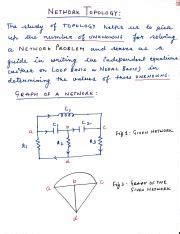 NETWORK TOPOLOGY:
The study of TOPOLOGY helps us to pick
up the number of UNKNOWNS for solving
a NETWORK PROBLEM and serves as a
guide in writing the independent equations
(either on LOOP BASIS or NODAL BASIS) in
determining the values of these UNKNOWNS.
GRAPH OF A NETWORK:
L1
a
b
c
C1
C2
R1
d
Fig 1: GIVEN NETWORK
a
b
c
d
Fig 2: GRAPH OF THE
GIVEN NETWORK